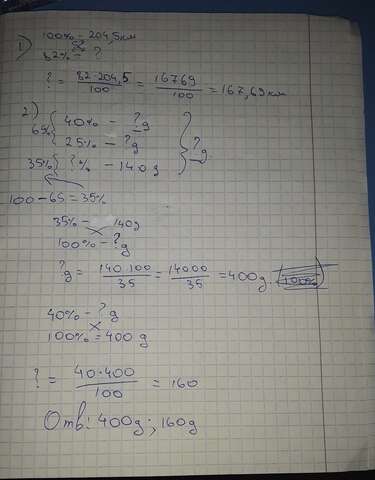 1) 100% - 204,5км
82% - ?
? = 82·204,5 / 100 = 16769 / 100 = 167,69км
2) 65% { 40% - ? g
25% - ? g } ? g
35% { ?% - 140g
100-65=35%
35% - 140g
100% - ? g
? g = 140·100 / 35 = 14000 / 35 = 400g.
40% - ? g
100% = 400 g
? = 40·400 / 100 = 160
Отв: 400g; 160g